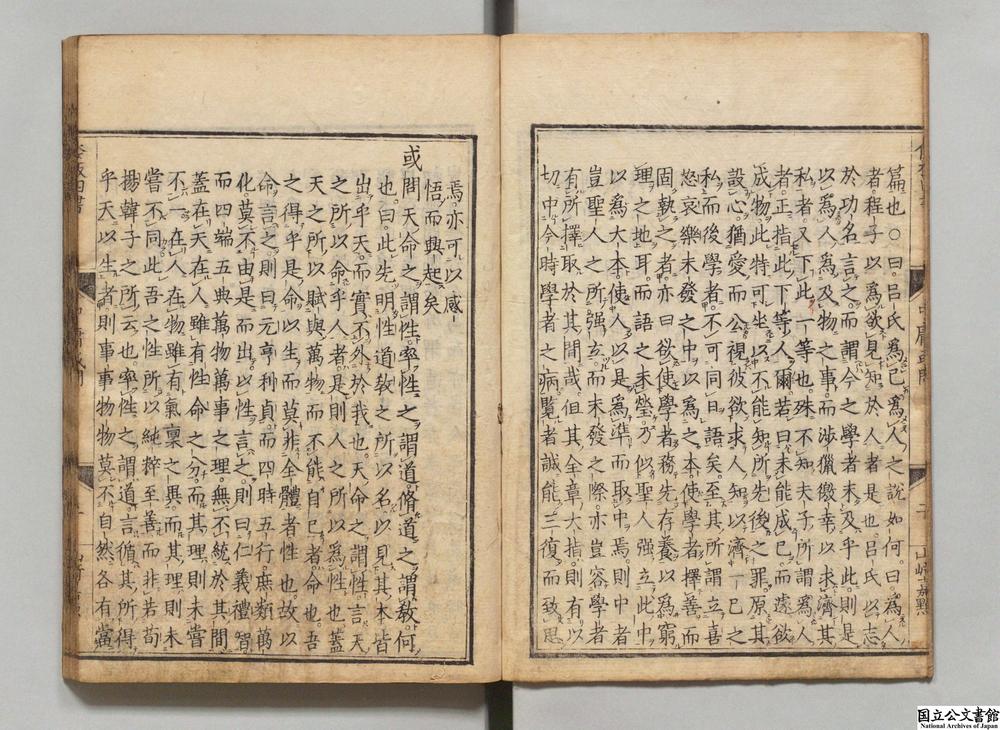 篇也○曰呂氏爲己爲人之說如何曰爲人
者程子以爲欲見知於人者是也呂氏以志
於功名言之而謂今之學者未及乎此則是
以爲人爲及物之事而涉獵徼幸以求濟其
私者又下此一等也殊不知夫子所謂爲人
者正指此下等人爾若曰未能成己而遽欲
成物此特可坐以不能知所先後之罪原其
設心猶愛而公視彼欲求人知以濟一己之
私而後學者不可同日語矣至其所謂立喜
怒哀樂未發之中以爲之本使學者擇善而
固執之者亦曰欲使學者務先存養以爲窮
理之地耳而語之未瑩乃似聖人强立此中
以爲大本使人以是爲準而取中焉則中者
豈聖人之所强立而未發之際亦豈容學者
有所擇取於其間哉但其全章大指則有以
切中今時學者之病覽者誠能三復而致思
焉亦可以感
悟而興起矣
或問天命之謂性率性之謂道脩道之謂敎何
也曰此先明性道敎之所以名以見其本皆
出乎天而實不外於我也天命之謂性言天
之所以命乎人者是則人之所以爲性也蓋
天之所以賦與萬物而不能自已者命也吾
之得乎是命以生而莫非全體者性也故以
命言之則曰元亨利貞而四時五行庶類萬
化莫不由是而出以性言之則曰仁義禮智
而四端五典萬物萬事之理無不統於其間
蓋在天在人雖有性命之分而其理則未嘗
不一在人在物雖有氣稟之異而其理則未
嘗不同此吾之性所以純粹至善而非若荀
揚韓子之所云也率性之謂道言循其所得
乎天以生者則事事物物莫不自然各有當
山崎嘉點
国立公文書館
National Archives of Japan